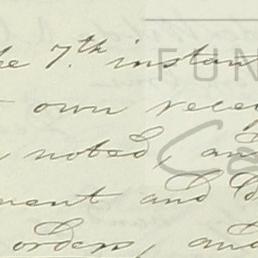 he 7.th instan
own recei
noted, an
ment and
orders, and
FUN
Ca